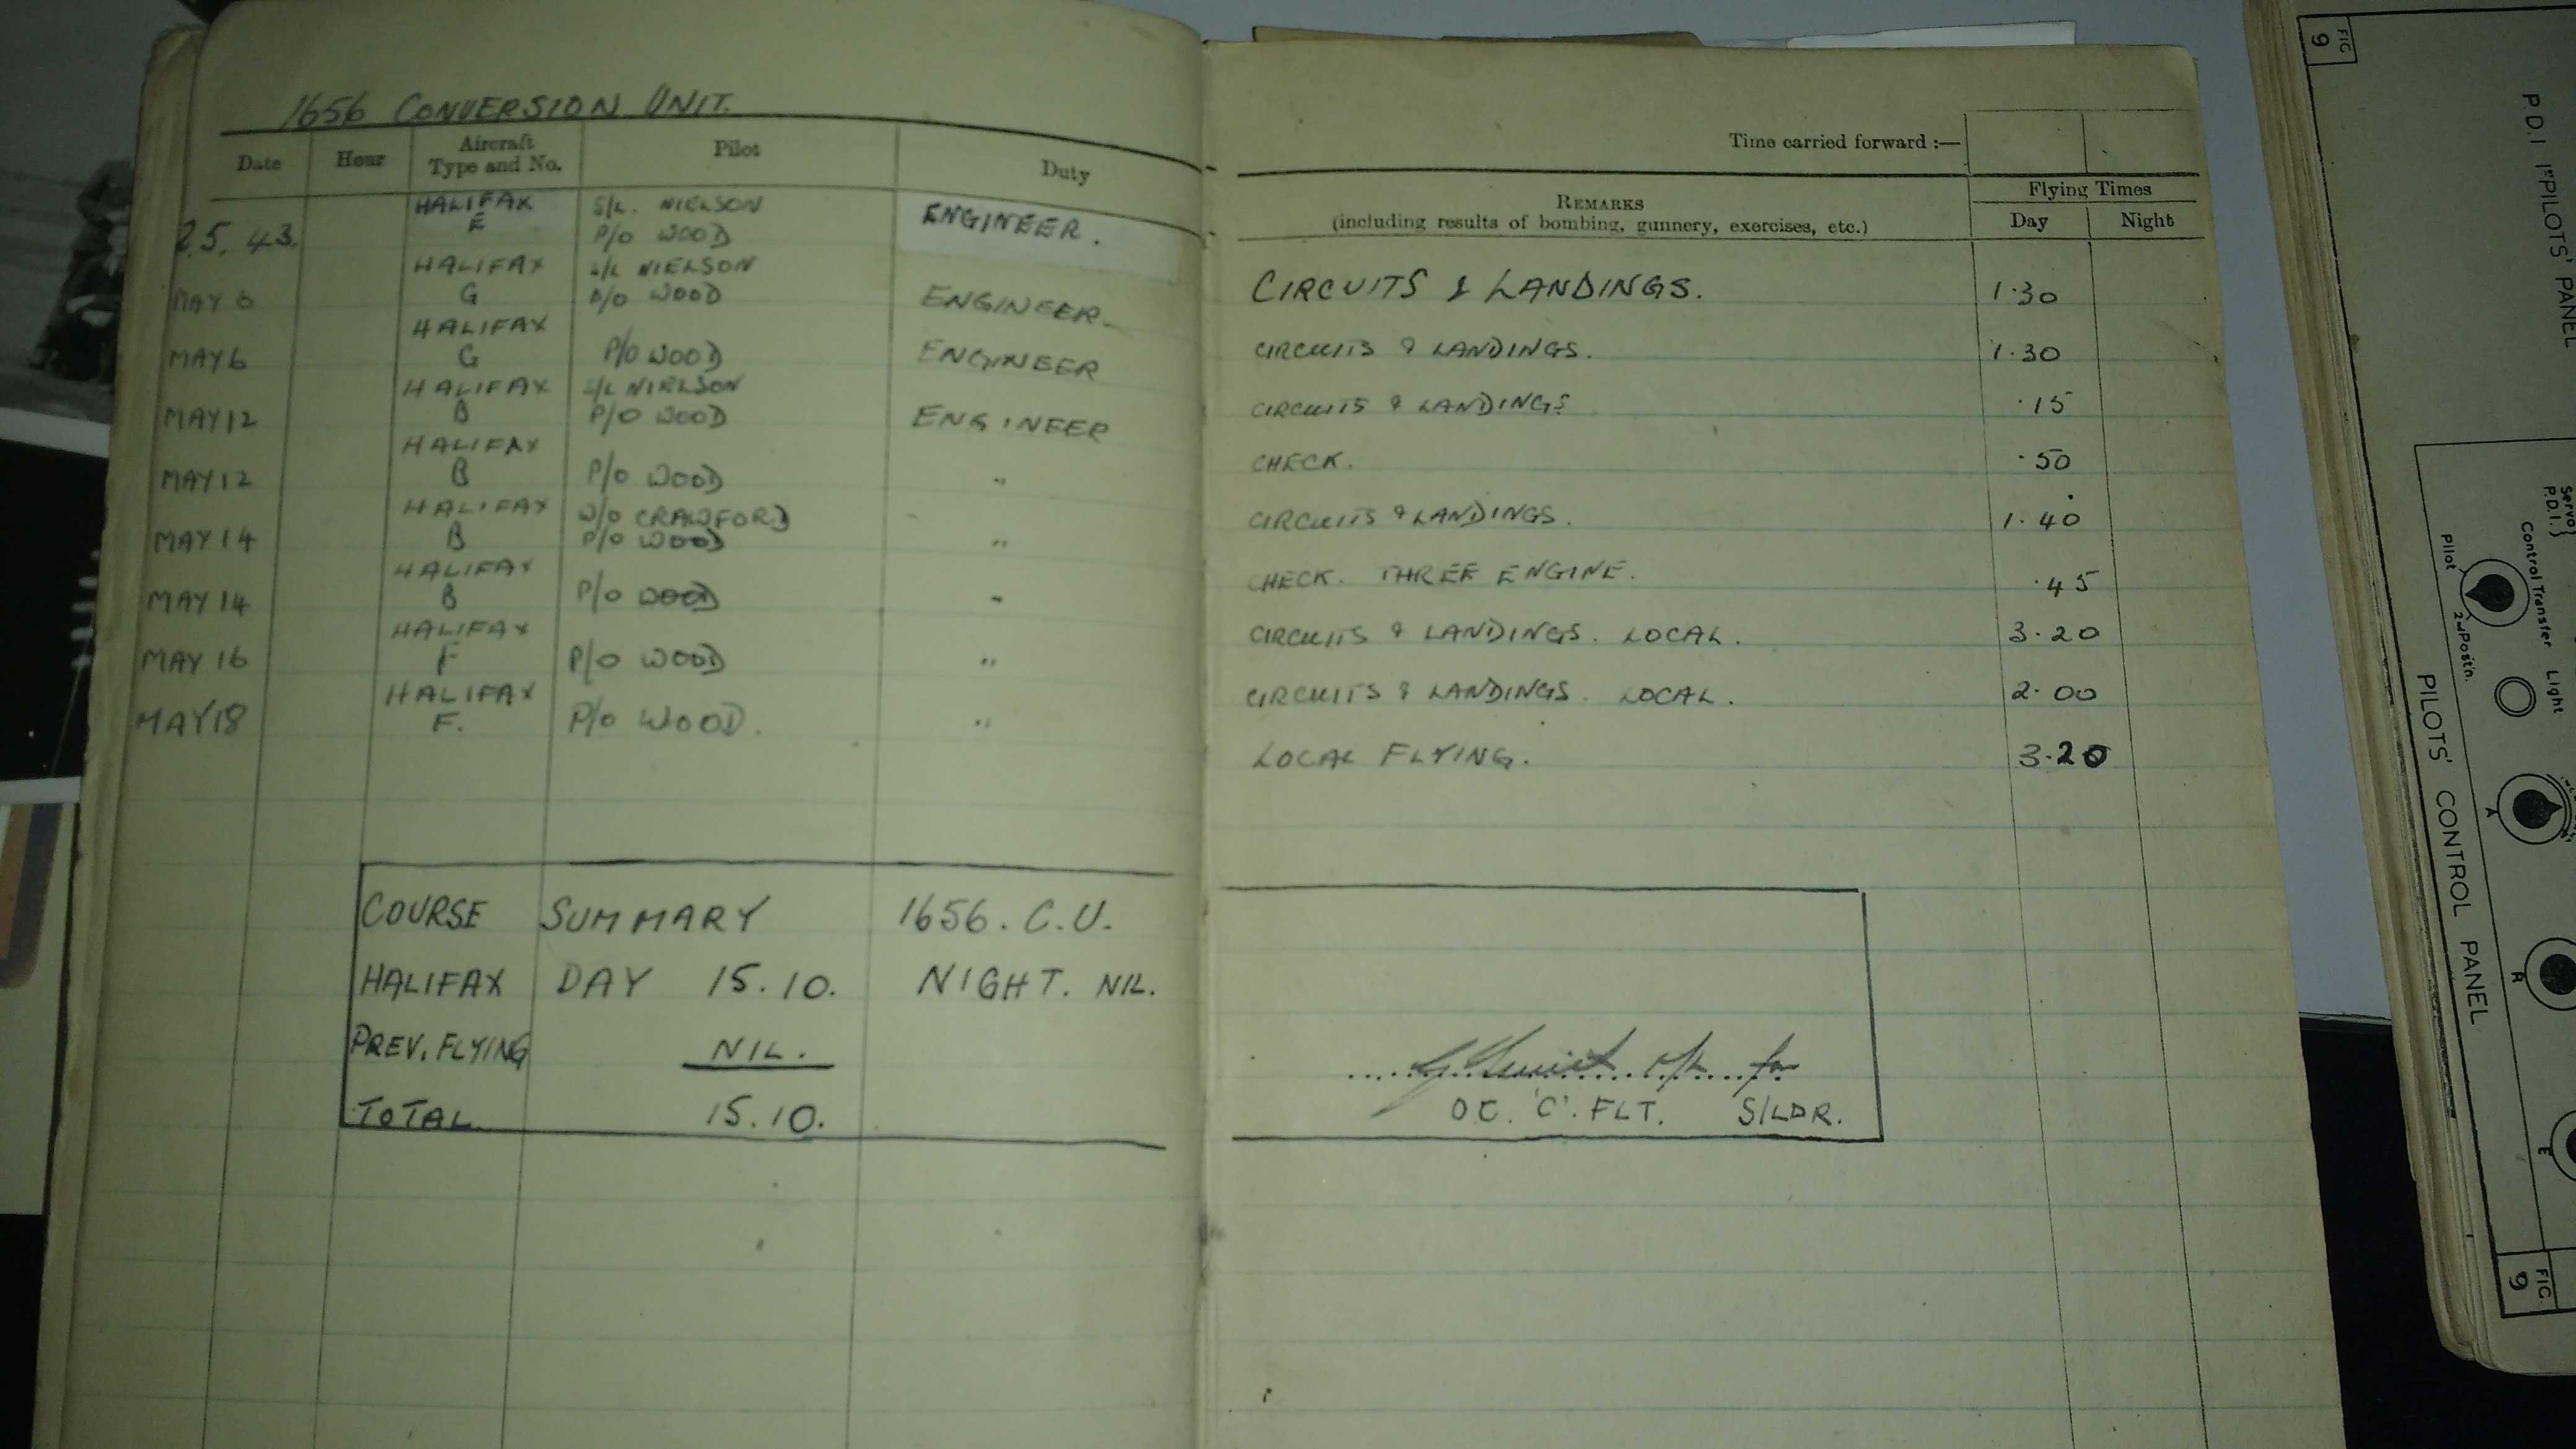 1656 CONVERSION UNIT.
Date Hour Aircraft Type and No. Pilot Duty
HALIFAX S/L. NIELSON ENGINEER.
2.5.43. E P/O WOOD
HALIFAX S/L NIELSON
MAY 6 G P/O WOOD ENGINEER.
HALIFAX
MAY 6 G P/O WOOD ENGINEER
HALIFAX S/L NIELSON
MAY 12 B P/O WOOD ENGINEER
HALIFAX
MAY 12 B P/O WOOD "
HALIFAX W/O CRAWFORD
MAY 14 B P/O WOOD "
HALIFAX
MAY 14 B P/O WOOD "
HALIFAX
MAY 16 F P/O WOOD "
HALIFAX
MAY 18 F. P/O WOOD. "
COURSE SUMMARY 1656. C.U.
HALIFAX DAY 15.10. NIGHT. NIL.
PREV. FLYING NIL.
TOTAL 15.10.
Time carried forward :—
REMARKS
(including results of bombing, gunnery, exercises, etc.)
Flying Times
Day Night
CIRCUITS & LANDINGS. 1.30
CIRCUITS & LANDINGS. 1.30
CIRCUITS & LANDINGS .15
CHECK. .50
CIRCUITS & LANDINGS. 1.40
CHECK. THREE ENGINE. .45
CIRCUITS & LANDINGS. LOCAL. 3.20
CIRCUITS & LANDINGS. LOCAL. 2.00
LOCAL FLYING. 3.20
for
O.C. 'C'. FLT. S/LDR.
FIG 9
P.D.I 1st PILOTS' PANEL
Servo
P.D.I.
Control Transfer Light
Pilot 2nd Positn.
A
R
E
PILOTS' CONTROL PANEL
FIG 9